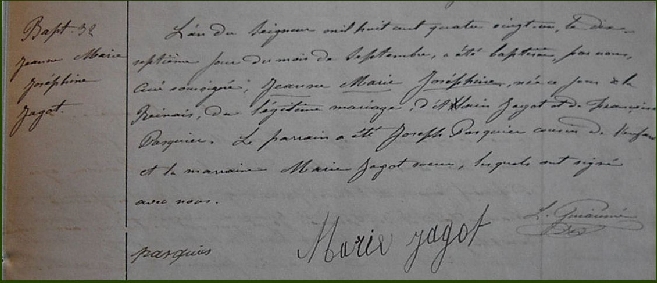 Bapt. 32
Jeanne Marie
Joséphine
Jagot.
L'an du Seigneur mil huit cent quatre vingt un, le dix-
septième jour du mois de Septembre, a été baptisée, par nous,
Curé soussigné, Jeanne Marie Joséphine, née ce jour à la
du légitime mariage d'Alain Jagot et de Françoise
Pasquier. Le parrain a été Joseph Pasquier cousin de l'enfant
et la marraine Marie Jagot soeur, lesquels ont signé
avec nous.
L.
pasquier
Marie Jagot